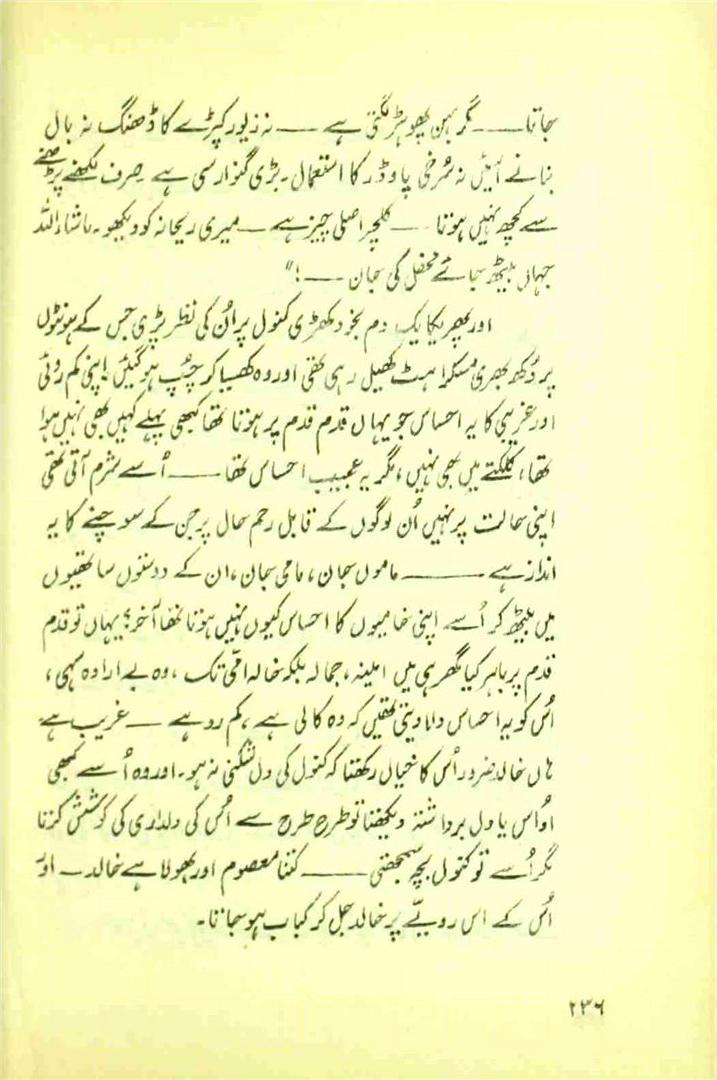 جاتا ـــ مگر بہن پھوہڑ لگتی ہے ـــ نہ زیور کپڑے کا ڈھنگ نہ بال
بنانے آئیں نہ سُرخی پاوڈر کا استعمال۔ بڑی گنوار سی ہے صرف لکھنے پڑھنے
سے کچھ نہیں ہوتا ـــ کلچر اصلی چیز ہے ـــ میری ریحانہ کو دیکھو۔ ماشاءاللہ
جہاں بیٹھ جائے محفل کی جان ـــ !"
اور پھر یکایک دم بخود کھڑی کنول پر اُن کی نظر پڑی جس کے ہونٹوں
پر دُکھ بھری مسکراہٹ کھیل رہی تھی اور وہ کھسیا کر چُپ ہو گئیں! اپنی کم روئی
اور غریبی کا یہ احساس جو یہاں قدم قدم پر ہوتا تھا کبھی پہلے کہیں بھی نہیں ہوا
تھا، کلکتے میں بھی نہیں، مگر یہ عجیب احساس تھا ـــ اُسے شرم آتی تھی
اپنی حالت پر نہیں اُن لوگوں کے قابل رحم حال پر جن کے سوچنے کا یہ
انداز ہے ـــ ماموں جان، مامی جان، ان کے دوستوں ساتھیوں
میں بیٹھ کر اُسے اپنی خامیوں کا احساس کیوں نہیں ہوتا تھا آخر؟ یہاں تو قدم
قدم پر باہر کیا گھر ہی میں امینہ، جمالہ بلکہ خالہ امّی تک، وہ بے ارادہ سہی،
اُس کو یہ احساس دلا دیتی تھیں کہ وہ کالی ہے، کم رو ہے ـــ غریب ہے
ہاں خالد ضرور اُس کا خیال رکھتا کہ کنول کی دل شکنی نہ ہو۔ اور وہ اُسے کبھی
اُداس یا دل برداشتہ دیکھتا تو طرح طرح سے اُس کی دلداری کی کوشش کرتا
مگر اُسے تو کنول بچہ سمجھتی ـــ کتنا معصوم اور بھولا ہے خالد ـــ اور
اُس کے اس رویّے پر خالد جل کر کباب ہو جاتا۔
۲۳۶